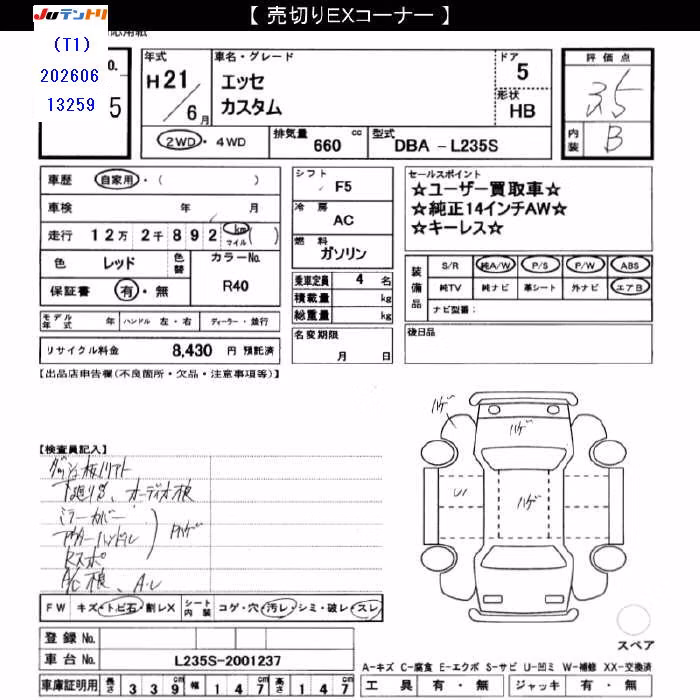 【 売切りEXコーナー 】
JUテントリ
(T1)
202606
13259
5
年式 H21/6月
車名・グレード エッセ カスタム
ドア 5
形状 HB
評価点 3.5
内装 B
2WD・4WD
排気量 660 cc
型式 DBA - L235S
車歴 自家用・( )
車検 年 月
走行 12万 2千 8 9 2 km マイル ( )
色 レッド
色替
カラーNo. R40
保証書 有・無
シフト F5
冷房 AC
燃料 ガソリン
乗車定員 4 名
積載量 kg
総重量 kg
セールスポイント
☆ユーザー買取車☆
☆純正14インチAW☆
☆キーレス☆
装備品
S/R 純A/W P/S P/W ABS
純TV 純ナビ 革シート 外ナビ エアB
ナビ型番:
モデル年式 年 ハンドル 左・右 ディーラー・並行
リサイクル料金 8,430 円 預託済
名変期限 月 日
後日品
【出品店申告欄(不良箇所・欠品・注意事項等)】
【検査員記入】
下廻りS、オーディオ根
ミラーカバー
アウターハンドル
Rスポ
A/C根、A・レ
ハゲ
ハゲ
ハゲ
FW キズ・トビ石・割レX
シート内装 コゲ・穴・汚レ・シミ・破レ・スレ
登録 No.
車台 No. L235S-2001237
車庫証明用 長さ 339cm 幅 147cm 高さ 147cm
スペア
A-キズ C-腐食 E-エクボ S-サビ U-凹ミ W-補修 XX-交換済
工具 有・無 ジャッキ 有・無